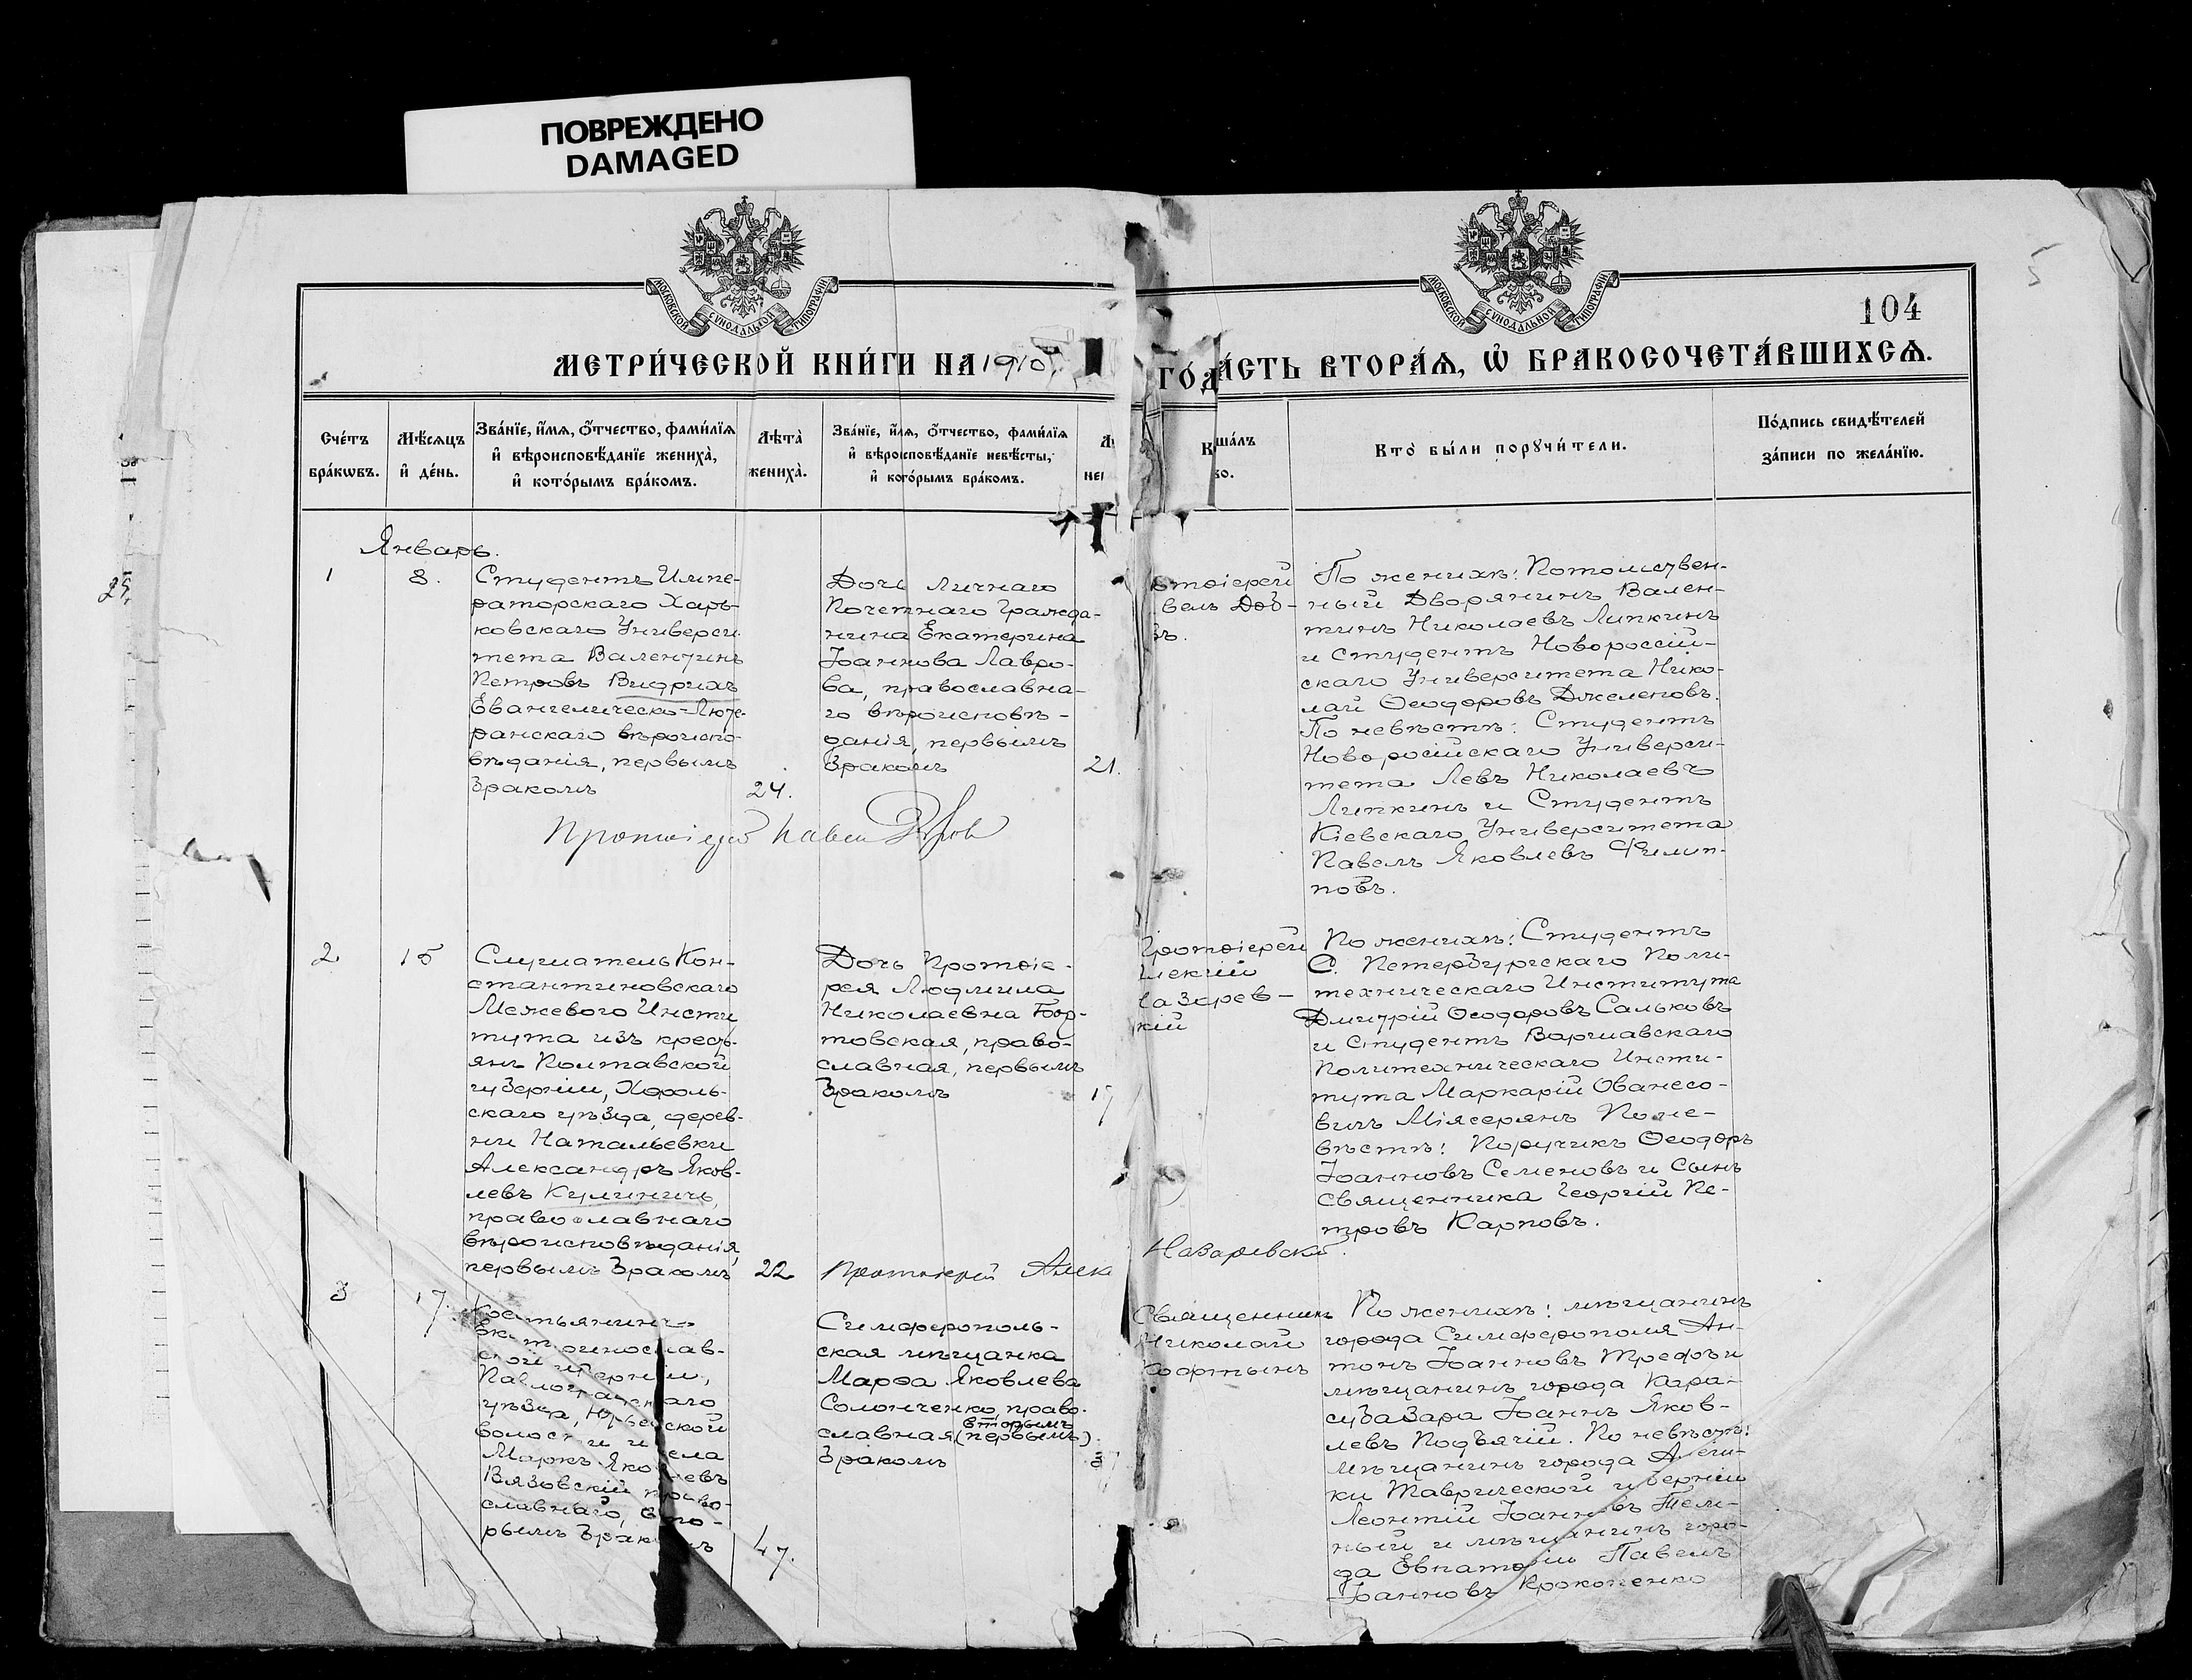 ПОВРЕЖДЕНО
DAMAGED
МОСКОВСКОЙ СѴНОДАЛЬНОЙ ТИПОГРАФІИ
МОСКОВСКОЙ СѴНОДАЛЬНОЙ ТИПОГРАФІИ
5
104
МЕТРИ́ЧЕСКОЙ КНИ́ГИ НА 1910
ГО́Д
А́СТЬ ВТОРА́Я, Ѿ БРАКОСОЧЕТА́ВШИХСЯ.
Сче́тъ
бра́кѡвъ.
Мѣ́сяцъ
и҆ де́нь.
Зва́нїе, и҆́мя, ѻ҆́тчество, фами́лїя
и҆ вѣроисповѣ́данїе жениха̀,
и҆ кото́рымъ бра́комъ.
Лѣта̀
жениха̀.
Зва́нїе, и҆́мя, ѻ҆́тчество, фами́лїя
и҆ вѣроисповѣ́данїе невѣ́сты,
и҆ кото́рымъ бра́комъ.
Кто̀ бы́ли порꙋчи́тели.
По́дпись свидѣ́телей
за́писи по жела́нїю.
Январь.
1
8.
Студентъ Импе-
раторскаго Харь-
ковскаго Универси-
тета Валентинъ
Петровъ Видрихъ
Евангелическо-Люте-
ранскаго вѣроиспо-
вѣданія, первымъ
бракомъ
24.
Дочь Личнаго
Почетнаго Гражда-
нина Екатерина
Іоаннова Лавро-
ва, православна-
го вѣроисповѣ-
данія, первымъ
бракомъ
21.
отоіерей
вель Доб-
въ.
По женихѣ: Потомствен-
ный Дворянинъ Вален-
тинъ Николаевъ Липкинъ
и Студентъ Новороссій-
скаго Университета Нико-
лай Ѳеодоровъ Джеленовъ.
По невѣстѣ: Студентъ
Новоросійскаго Универси-
тета Левъ Николаевъ
Липкинъ и Студентъ
Кіевскаго Университета
Павелъ Яковлевъ Филип-
повъ.
Протоіерей Павелъ
2
15
Слушатель Кон-
стантиновскаго
Межевого Инсти
тута изъ кресть-
янъ Полтавской
губерніи, Хороль-
скаго уѣзда, дерев-
ни Натальевки
Александръ Яков-
левъ Кулиничъ,
православнаго
вѣроисповѣданія,
первымъ бракомъ
22
Дочь Протоіе-
рея Людмила
Николаевна Бор-
товская, право-
славная, первымъ
бракомъ
17
Протоіерей
лексій
азарев-
кій
По женихѣ: Студентъ
С. Петербургскаго Поли-
техническаго Института
Дмитрій Ѳеодоровъ Сальковъ
и Студентъ Варшавскаго
Политехническаго Инсти-
тута Маркарій Ованесо-
вичъ Міясерянъ По не-
вѣстѣ: Поручикъ Ѳеодоръ
Іоанновъ Семеновъ и Сынъ
священника Георгій Пе-
тровъ Карповъ.
Протоіерей Алек
Назаревскій.
3
17.
Крестьянинъ
Екатеринослав-
ской губерніи,
Павлоградскаго
уѣзда, Юрьевской
волости и села
Маркъ Яковлевъ
Вязовскій право-
славнаго, вто-
рымъ бракомъ
47.
Симферополь-
ская мѣщанка
Марѳа Яковлева
Солонченко, право-
вторымъ
славная (первымъ)
бракомъ
Священникъ
Николай
Бортынъ
По женихѣ: мѣщанинъ
города Симферополя Ан-
тонъ Іоанновъ Трефъ и
мѣщанинъ города Кара-
субазара Іоаннъ Яков-
левъ Подъячій. По невѣстѣ:
мѣщанинъ города Алеш-
ки Таврической губерніи
Леонтій Іоанновъ Тели-
ный и мѣщанинъ горо-
да Евпаторіи Павелъ
Іоанновъ Прокопенко